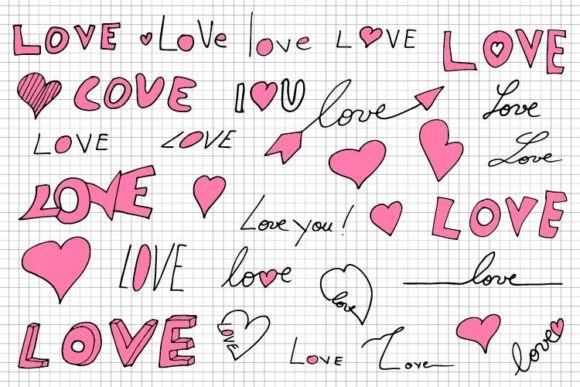 LOVE
LoVe
love
L♥VE
LOVE
COVE
I♥U
love
Love
LOVE
LOVE
Love
LOVE
Love you!
LOVE
LOVE
lo♥e
love
love
LOVE
LOVE
LoVE
Love
love